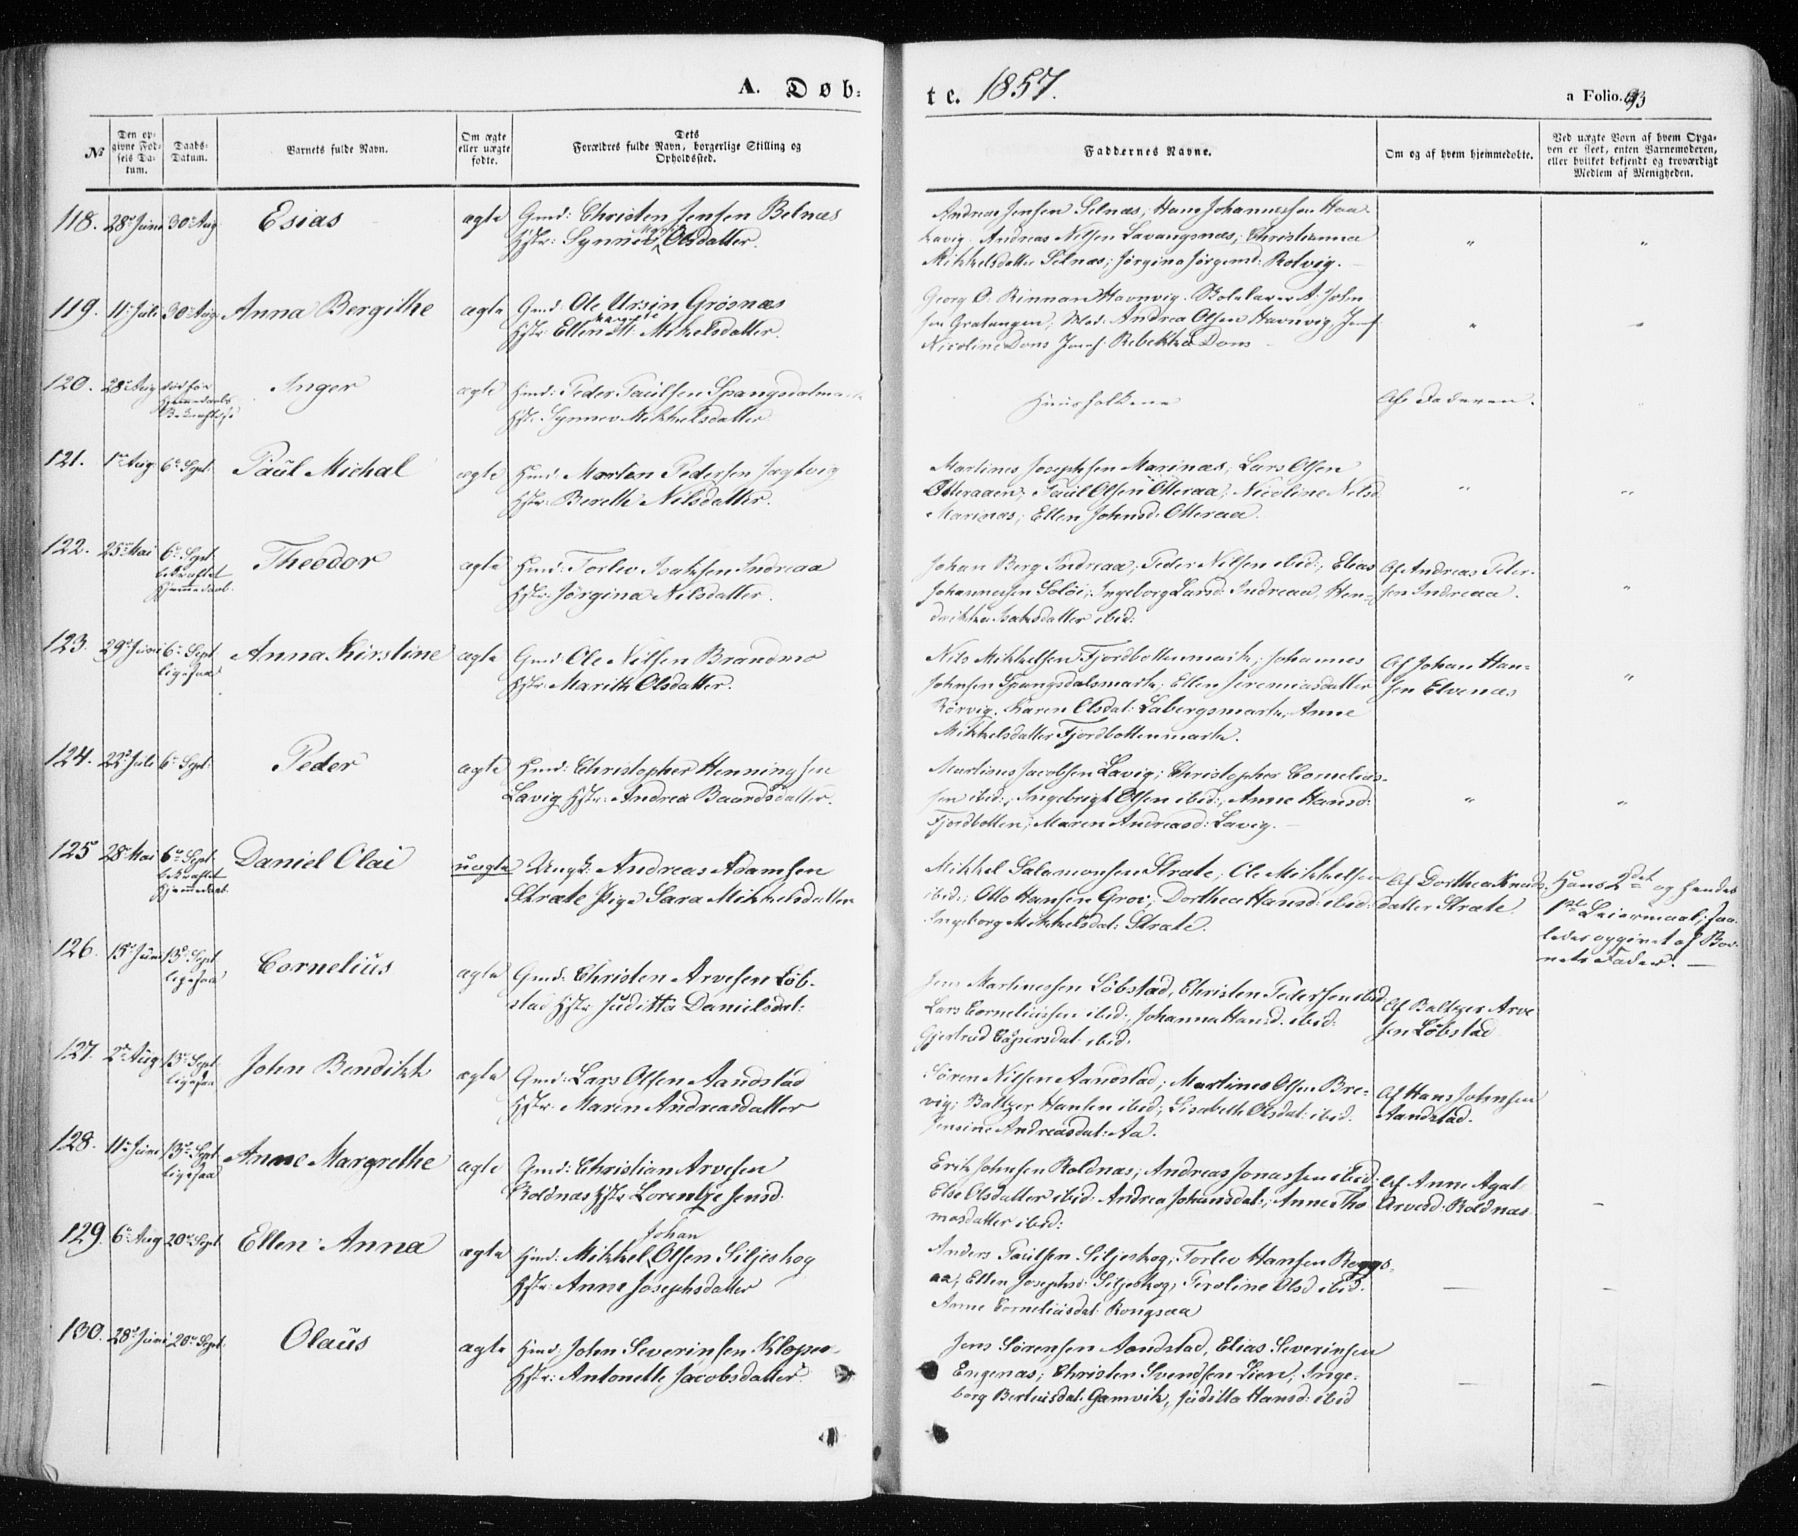 A. Døb-
te. 1857.
a Folio. 93
No
Den op-
givne Fød-
sels Da-
tum.
Daabs-
Datum.
Barnets fulde Navn.
Om ægte
eller uægte
fødte.
Dets
Forældres fulde Navn, borgerlige Stilling og
Opholdssted.
Faddernes Navne.
Om og af hvem hjemmedøbte.
Ved uægte Børn af hvem Opga-
ven er skeet, enten Barnemoderen,
eller hvilket bekjendt og troværdigt
Medlem af Menigheden.
118. 28de Juni 30te Aug Esias ægte Gmd: Christen Jensen Belnæs
Hstr: Synnev Olsdatter.
Andreas Jensen Selnæs; Hans Johannessen Haa-
kavig. Andreas Nilsen Lavangsnæs; Christianna
Mikkelsdatter Selnæs; Jørgina Jørgensd: Rotvig.
119. 11te Juli 30te Aug Anna Bergithe ægte Gmd: Ole Ursin Grøsnæs
Hstr: Ellen M: Mikelsdatter.
Georg O. Rinnan Havnvig. A. John-
sen Gratangen; Mad: Andrea Olsen Havnvig, Jomf:
Nicoline Dons Jomf: Rebekka Dons
120. 28de Aug Inger ægte Hmd: Peder Paulsen Spangsdalmark
Hjemmedaabs
Bekræftelse
Hstr: Synnev Mikkelsdatter
Huusfolkene
Af Faderen.
121. 1te Aug 6te Sept. Paul Michal ægte Hmd: Morten Pedersen Jægtvig
Hstr: Berethe Nilsdatter.
Martines Josephsen Marinæs; Lars Olsen
Otteraaen; Paul Olsen Otteraa; Nicoline Nilsd:
Marinæs; Ellen Johnsd: Otteraa.
122. 25de Mai 6te Sept. Theodor ægte Hmd: Torlev Isaksen Indreaa
bekræftet
Hjemmedaab.
Hstr: Jørgina Nilsdatter.
Johan Berg Indreaa; Peder Nilsen ibid:; Elias
Johannessen Soløi; Ingeborg Larsd: Indreaa, Hen-
drikka Isaksdatter ibid:
Af Andreas Peter-
sen Indreaa.
123. 29de Juni 6te Sept Anna Kirstine ægte Gmd: Ole Nilsen Brandmo
ligesaa
Hstr: Marith Olsdatter.
Nils Mikkelsen Fjordbottenmark; Johannes
Johnsen Spangsdalsmark; Ellen Jeremiasdatter
Rørvig. Karen Olsdat: Labergsmark, Anne
Mikkelsdatter Fjordbottenmark.
Af Johan Han-
sen Elvenæs
124. 22de Juli 6te Sept: Peder ægte Hmd: Christopher Henningsen
Lavig Hstr: Andrea Baardsdatter.
Martines Jacobsen Lavig; Christopher Cornelius-
sen ibid:; Ingebrigt Olsen ibid:, Anne Hansd:
Fjordbotten; Maren Andreasd: Lavig.
125 28de Mai 6te Sept Daniel Olai uægte Ungk: Andreas Adamsen
bekræftet
Hjemmedaab.
Strate Pige Sara Mikkelsdatter
Mikkel Salamonsen Strate; Ole Mikkelsen
ibid:; Otto Hansen Grov; Dorthea Hansd: ibid:
Ingeborg Mikkelsdat: Strate.
Af Dorthea Knuds
datter Strate.
Hans 2det og hendes
1ste Leiermaal; saa-
ledes opgivet af Bar-
nets Fader.
126. 15de Juni 13de Sept Cornelius ægte Gmd: Christen Arvesen Løb-
ligesaa
stad Hstr Juditta Danielsdat:
Jens Martinessen Løbstad, Christen Pedersen ibid
Lars Corneliussen ibid:, Johanna Hansd. ibid:
Gjertrud Caspersdat: ibid.
Af Baltzer Arve
sen Løbstad
127. 2de Aug 13de Sept John Bendikk ægte Gmd: Lars Olsen Aandstad
ligesaa
Hstr: Maren Andreasdatter
Søren Nilsen Aandstad; Martines Olsen Bre-
vig; Baltzer Hansen ibid; Lisabeth Olsdat: ibid.
Jensine Andreasdat: Aa.
Af Hans Johnsen
Aandstad.
128. 11te Juni 13de Sept Anne Margrethe ægte Gmd: Christian Arvesen
ligesaa
Roldnæs Hstr Lorentze Jensd.
Erik Johnsen Roldnæs; Andreas Jonassen ibid;
Else Olsdatter ibid: Andrea Johansdat:; Anne Tho
masdatter ibid:
Af Anne Agat
Arvesd: Roldnæs
129. 6te Aug 20de Sept Ellen Anna ægte Hmd: Mikkel Johan Olsen Siljeskog
Hstr: Anne Josephsdatter
Anders Paulsen Siljeskog, Torlev Hansen Rongs-
aa; Ellen Josephsd: Siljeskog; Peroline Olsd ibid.
Anne Corneliusdat: Rongsaa
130. 28de Juni 20de Sept. Olaus ægte Hmd: John Severinsen Kløpen
Hstr: Antonette Jacobsdatter
Jens Sørensen Aandstad, Elias Severinsen
Engenæs; Christen Svendsen Lien; Inge-
borg Berteusdat: Gamvik, Juditta Hansd: ibid